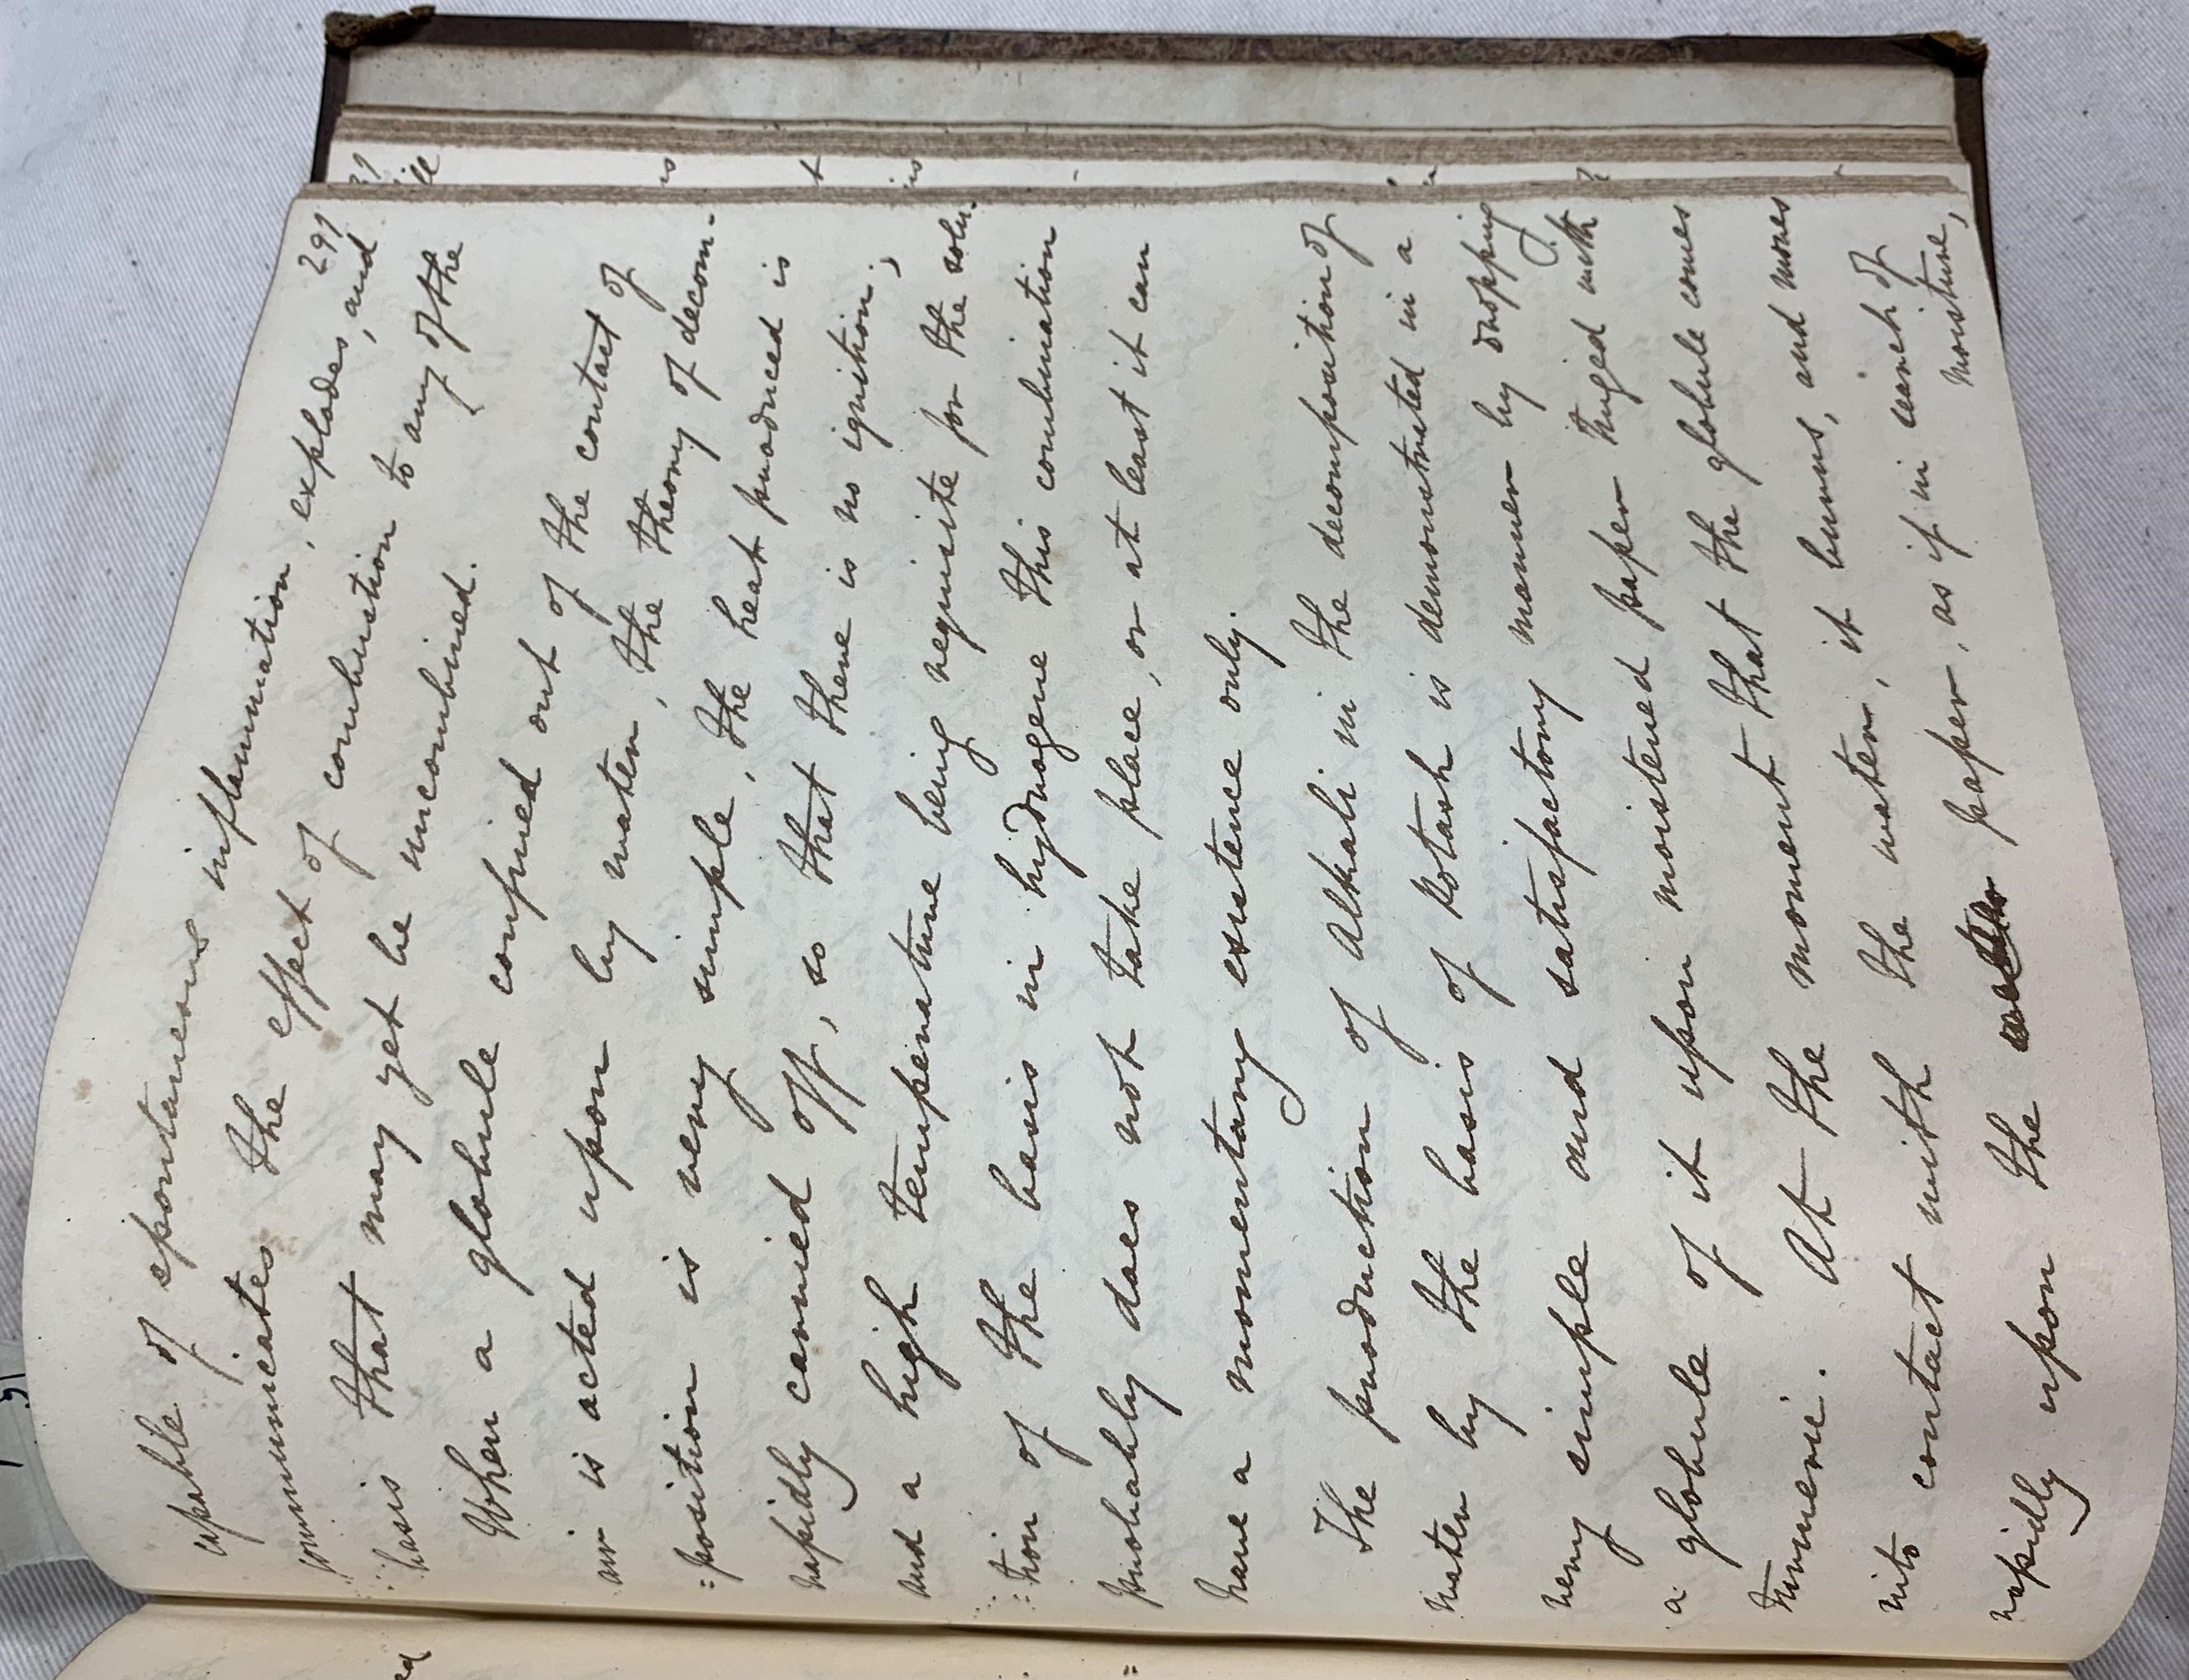 291
capable of spontaneous inflammation, explodes, and
communicates the effect of combustion to any of the
basis that may yet be uncombined.
When a globule confined out of the contact of
air is acted upon by water, the theory of decom-
=position is very simple, the heat produced is
rapidly carried off, so that there is no ignition;
and a high temperature being requisite for the solu-
=tion of the basis in hydrogene this combination
probably does not take place, or at least it can
have a momentary existence only.
The production of Alkali in the decomposition of
water by the basis of Potash is demonstrated in a
very simple and satisfactory manner by dropping
a globule of it upon moistened paper tinged with
turmeric. At the moment that the globule comes
into contact with the water, it burns, and moves
rapidly upon the paper, as if in search of
moisture,
ed